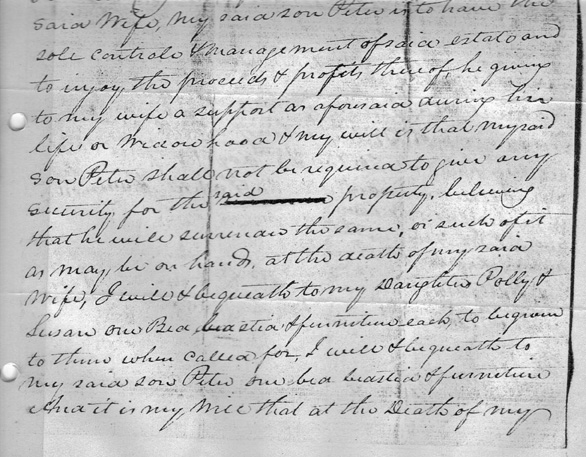 said Wife, my said son Peter is to have the
sole controle & management of said estate and
to injoy the proceeds & profits thereof, he giving
to my wife a support as aforesaid during her
life or Widowhood & my will is that my said
son Peter shall not be required to give any
security for the said property, believing
that he will surrender the same, or such of it
as may be on hand, at the death of my said
Wife, I will & bequeath to my Daughters Polly &
Susan one Bed beastid & furniture each to be given
to them when called for, I will & bequeath to
my said son Peter one bed beastid & furniture
And it is my Will that at the Death of my